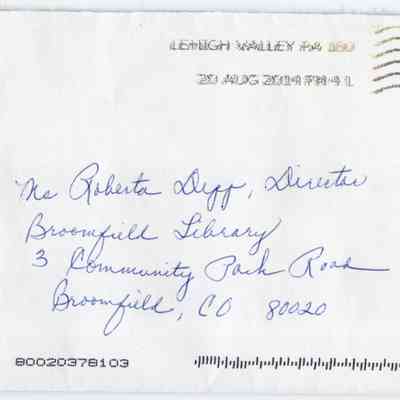 LEHIGH VALLEY PA 180
20 AUG 2019 PM 4 L
Ms Roberta Depp, Director
Broomfield Library
3 Community Park Road
Broomfield, CO 80020
80020378103